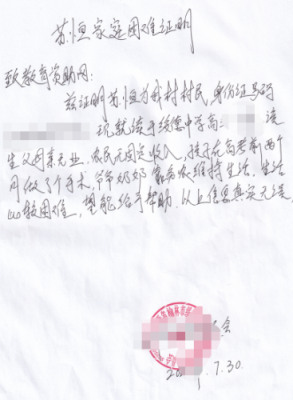 苏恒家庭困难证明
致教育资助网:
兹证明苏恒为我村村民,身份证号码
现就读于绥德中学高二 该
生父母未无业,农民无固定收入,孩子在高考前两个
月做了个手术,爷爷奶奶 维持生活,生活
比较困难,望能给予帮助.以上信息真实无误.
会
20 .7.30.